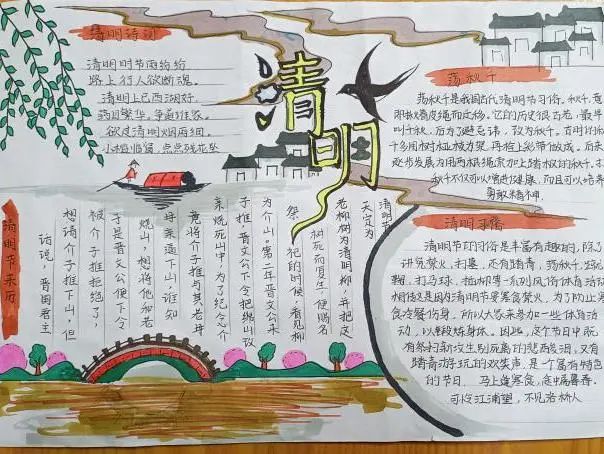 清明诗词
清明时节雨纷纷
路上行人欲断魂。
清明上巳西湖好,
满目繁华,争道
欲过清明烟雨细。
小槛临窗,点点残花坠
清明
荡秋千
荡秋千是我国古代清明节习俗,秋千,意
即揪着皮绳而迁移。它的历史很古老,最早
叫千秋,后为了避忌讳,改为秋千。古时的秋
千多用树枝桠为架,再栓上彩带做成。后来
逐步发展为用两根绳索加上踏板的秋千,打
秋千不仅可以增进健康,而且可以培养
勇敢精神。
清明习俗
清明节的习俗是丰富有趣的,除了
讲究禁火、扫墓,还有踏青,荡秋千,蹴
鞠、打马球、插柳等一系列风俗体育活动
相传这是因为清明节要寒食禁火,为了防止寒
食冷餐伤身,所以大家来参加一些体育活
动,以锻炼身体。因此,这个节日中既
有祭扫新坟生别死离的悲酸泪,又有
踏青游玩的欢笑声,是一个富有特色
的节日。马上逢寒食,途中属暮春。
可怜江浦望,不见洛桥人
清明节来历
话说,晋国君主
想请介子推下山,但
被介子推拒绝了,
于是晋文公便下令
烧山,想将他和老
母亲逼下山,谁知
竟将介子推与其老母
亲烧死山中,为了纪念介
子推,晋文公下令把绵山改
为介山。第二年晋文公来
祭祀的时候,看见柳
树死而复生,便赐名
老柳树为清明柳,并把这
天定为
清明节